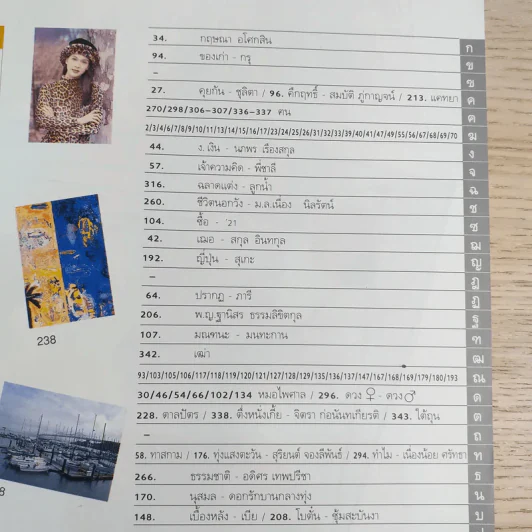 34. กฤษณา อโศกสิน ก
94. ของเก่า - กรุ ข
– ฃ
27. คุยกัน - ชุลิตา / 96. คึกฤทธิ์ - สมบัติ ภู่กาญจน์ / 213. แคทยา ค
270/298/306-307/336-337 คน ฅ
2/3/4/6/7/8/9/10/11/13/14/15/16/17/23/24/25/26/31/32/33/39/40/41/47/49/55/56/67/68/69/70 ฆ
44. ง. เงิน - นภพร เรืองสกุล ง
57. เจ้าความคิด - พี่ชาลี จ
316. ฉลาดแต่ง - ลูกน้ำ ฉ
260. ชีวิตนอกวัง - ม.ล.เนื่อง นิลรัตน์ ช
104. ซื้อ - '21 ซ
42. เฌอ - สกุล อินทกุล ฌ
192. ญี่ปุ่น - สุเกะ ญ
– ฎ
64. ปรากฏ - ภารี ฏ
206. พ.ญ.ฐานิสร ธรรมลิขิตกุล ฐ
107. มณฑนะ - มนทะกาน ฑ
342. เฒ่า ฒ
93/103/105/106/117/118/119/120/121/127/128/129/135/136/137/147/167/168/169/179/180/193 ณ
30/46/54/66/102/134 หมอไพศาล / 296. ดวง ♀ - ดวง ♂ ด
228. ตาลปัตร / 338. ตึ่งหนังเกี้ย - จิตรา ก่อนันทเกียรติ / 343. ใต้ถุน ต
– ถ
58. ทาสกาม / 176. ทุ่งแสงตะวัน - สุริยนต์ จองลีพันธ์ / 294. ทำไม - เนื่องน้อย ศรัทธา ท
266. ธรรมชาติ - อดิศร เทพปรีชา ธ
170. นุสมล - ดอกรักบานกลางทุ่ง น
148. เบื้องหลัง - เบีย / 208. โบตั๋น - ซุ้มสะบันงา บ
238
8